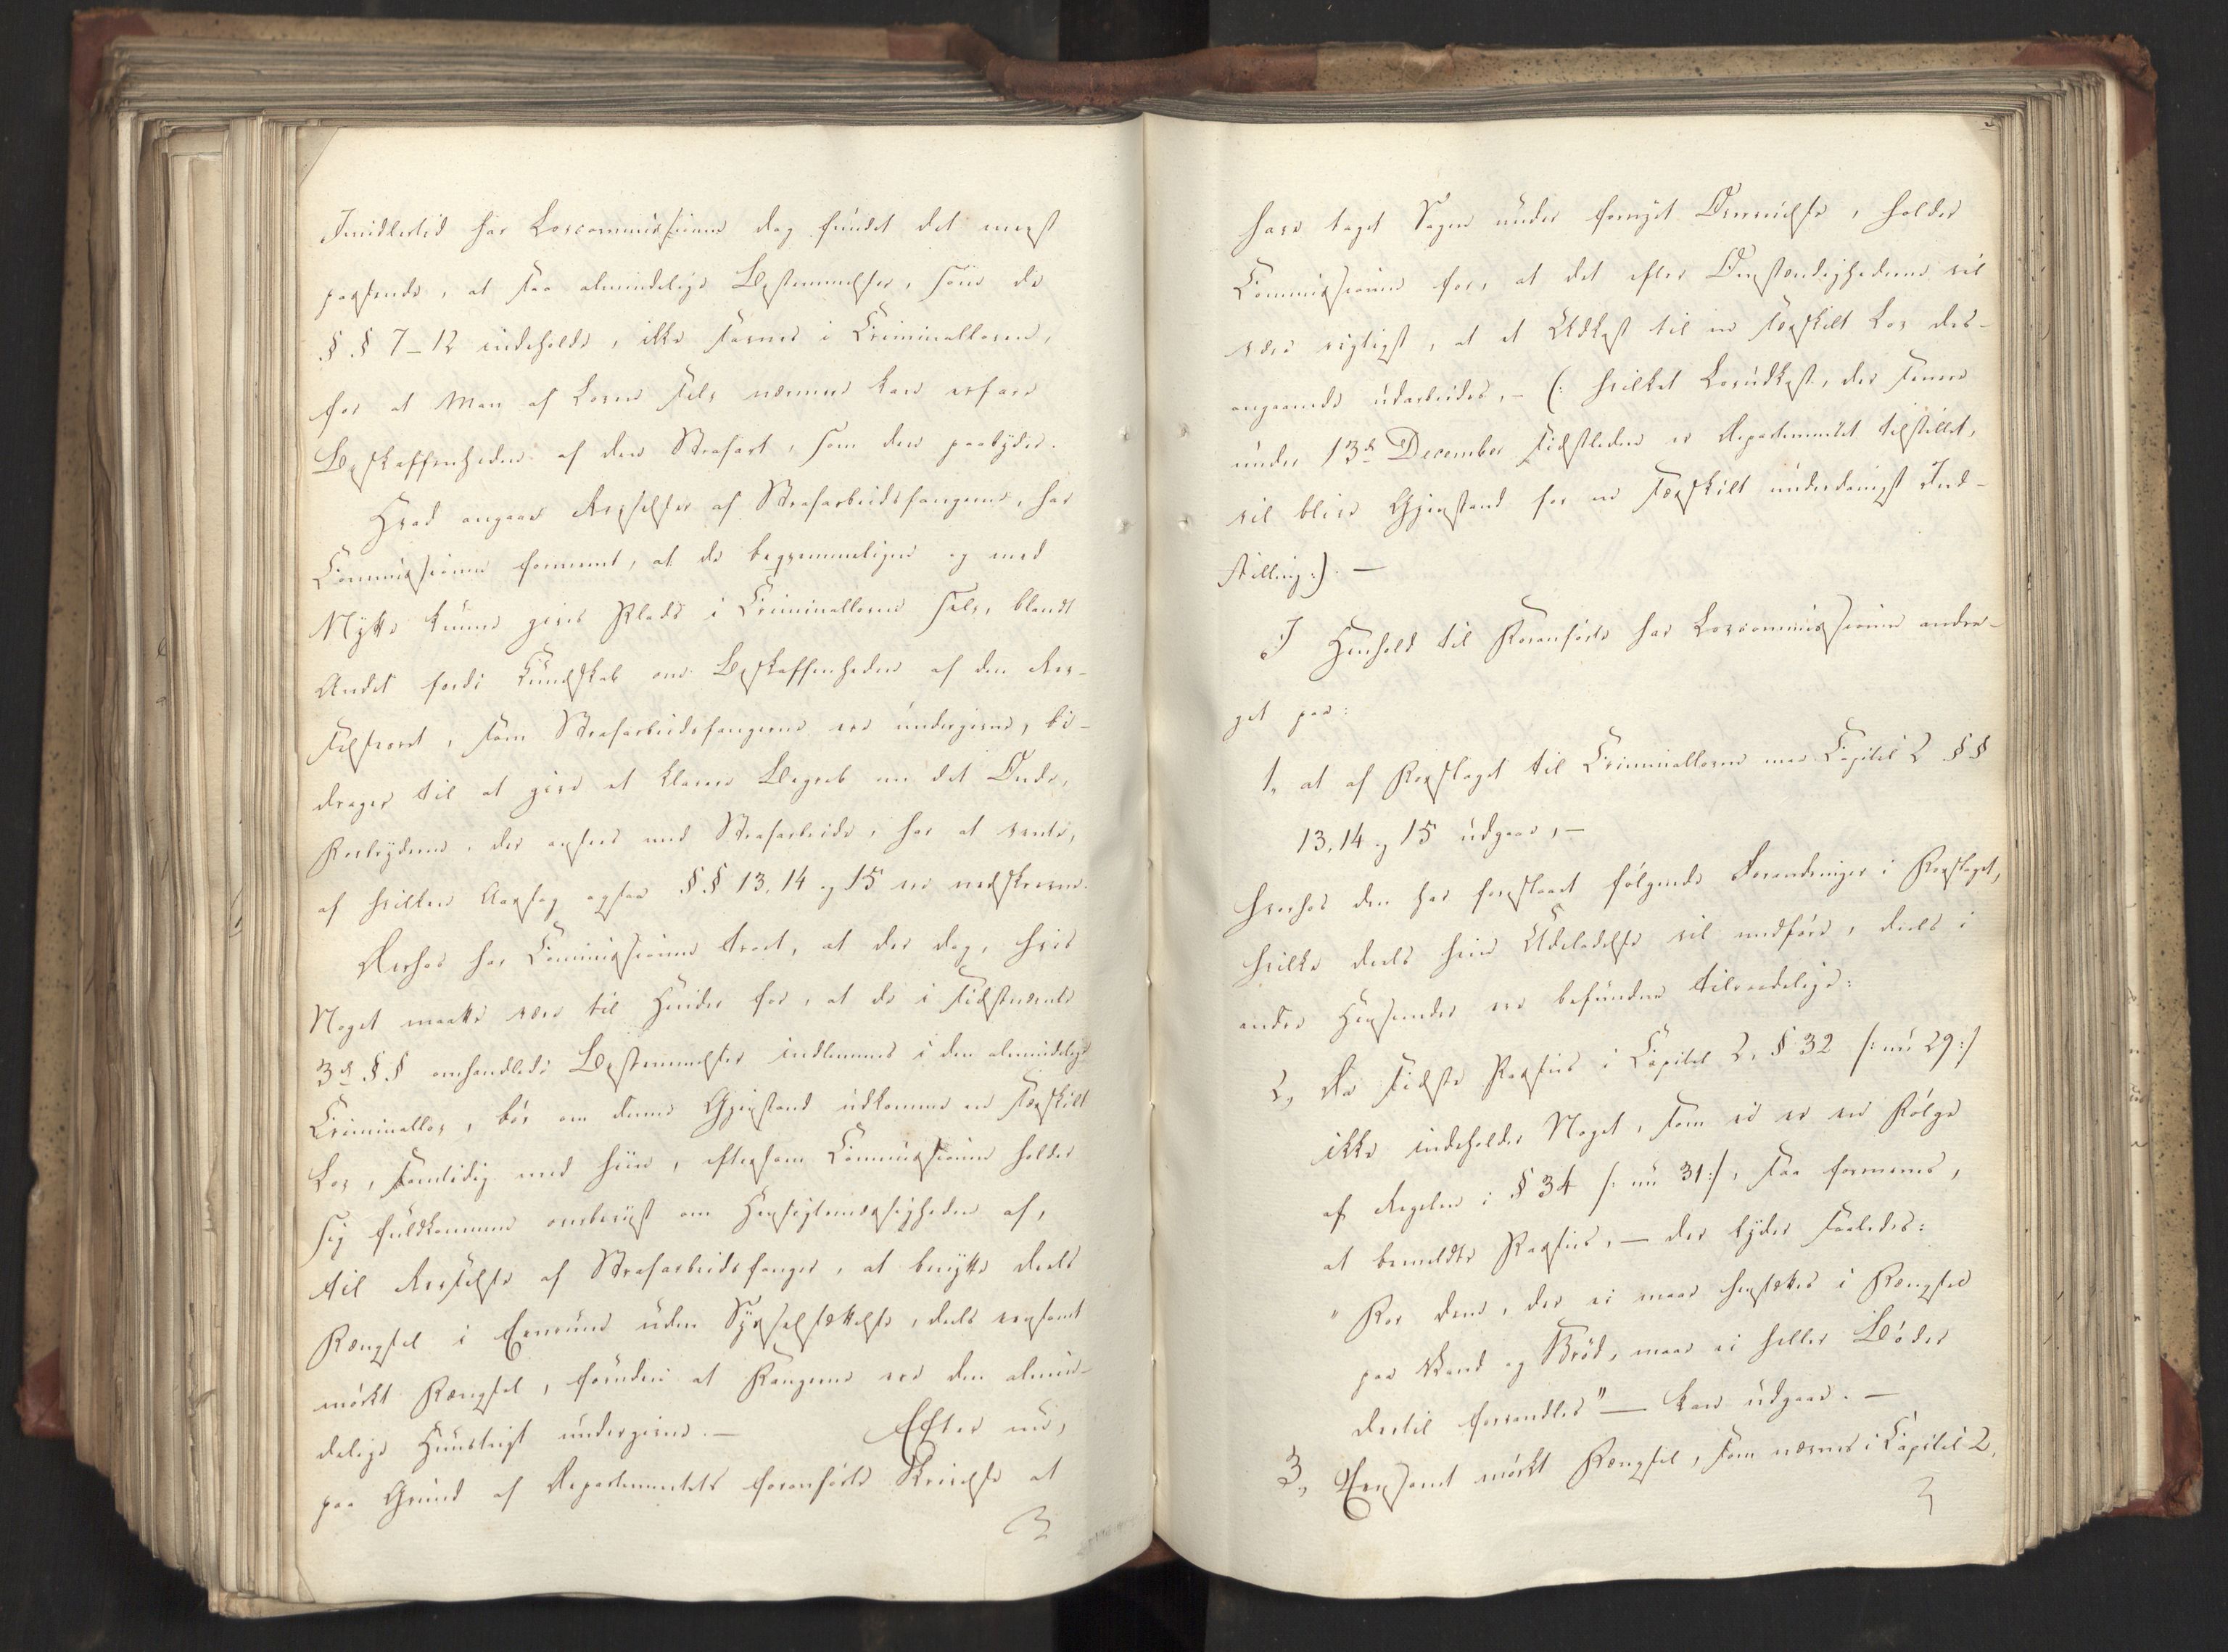 Imidlertid har Lovcommissionen dog fundet det meest
passende, at saa almindelige Bestemmelser, som de
§ § 7-12 indeholde, ikke savnes i Criminalloven,
for at Man af Loven selv nærmere kan erfare
Beskaffenheden af den Strafart, som den paabyder.
Hvad angaaer Revselser af Strafarbeidsfangerne, har
Commissionen formeent, at de beqvemmeligen og med
Nytte kunne gives Plads i Criminalloven selv, blandt
Andet fordi Kundskab om Beskaffenheden af den Rev-
selsret, som Strafarbeidsfangerne ere undergivne, bi-
drager til at give et klarere Begreb om det Onde,
Forbryderen, der ansees med Strafarbeide, har at vente,
af hvilken Aarsag ogsaa § § 13, 14 og 15 ere nedskrevne.
Derhos har Commissionen troet, at der dog, hvis
Noget maatte være til Hinder for, at de i sidstnævnte
3de § § omhandlede Bestemmelser indlemmes i den almindelige
Criminallov, bör om denne Gjenstand udkomme en særskilt
Lov, samtidig med hiin, eftersom Commissionen holder
sig fuldkommen overbeviist om Hensigtsmæssigheden af,
til Revselse af Strafarbeidsfanger, at benytte deels
Fængsel i Eenrum uden Sysselsættelse, deels eensomt
mörkt Fængsel, foruden at Fangerne ere den almin-
delige Huustugt undergivne. — Efter nu,
paa Grund af Departementets foranförte Skrivelse at
have taget Sagen under fornyet Overveielse, holder
Commissionen for, at det efter Omstændighederne vil
være rigtigst, at et Udkast til en særskilt Lov des-
angaaende udarbeides, — (: hvilket Lovudkast, der senere
under 13de December sidstleden er Departementet tilstillet,
vil blive Gjenstand for en særskilt underdanigst Ind-
stilling:). —
I Henhold til Foranförte har Lovcommissionen andra-
get paa:
1, at af Forslaget til Criminalloven maa Capitel 2 § §
13, 14 og 15 udgaae, —
hvorhos den har foreslaaet fölgende Forandringer i Forslaget,
hvilke deels hiin Udeladelse vil medföre, deels i
andre Henseender ere befundne tilraadelige:
2, Da sidste Passus i Capitel 2, § 32 /: nu 29 :/
ikke indeholder Noget, som ei er en Fölge
af Regelen i § 34 /: nu 31 :/, saa formenes,
at bemeldte Passus, — der lyder saaledes:
" For dem, der ei maae hensættes i Fængsel
paa Vand og Bröd, maae ei heller Böder
dertil forvandles" — kan udgaae. —
3, Eensomt mörkt Fængsel, som nævnes i Capitel 2,